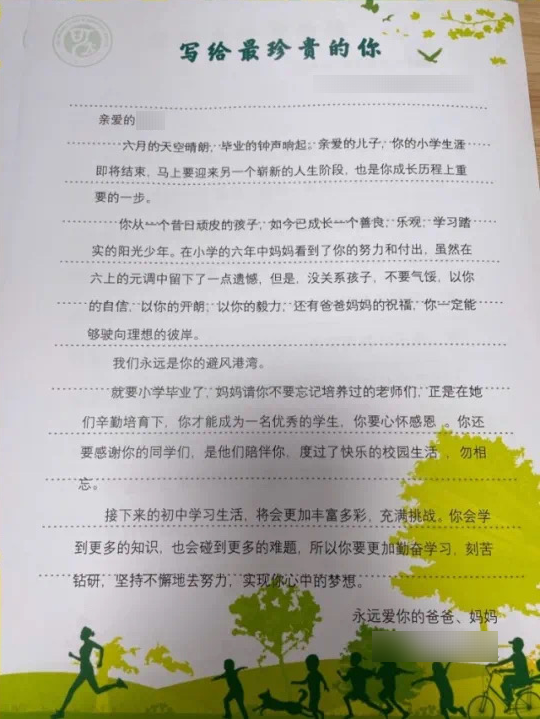 写给最珍贵的你
亲爱的
六月的天空晴朗，毕业的钟声响起。亲爱的儿子，你的小学生涯
即将结束，马上要迎来另一个崭新的人生阶段，也是你成长历程上重
要的一步。
你从一个昔日顽皮的孩子，如今已成长一个善良，乐观，学习踏
实的阳光少年。在小学的六年中妈妈看到了你的努力和付出，虽然在
六上的元调中留下了一点遗憾，但是，没关系孩子，不要气馁，以你
的自信，以你的开朗，以你的毅力，还有爸爸妈妈的祝福，你一定能
够驶向理想的彼岸。
我们永远是你的避风港湾。
就要小学毕业了，妈妈请你不要忘记培养过的老师们，正是在她
们辛勤培育下，你才能成为一名优秀的学生，你要心怀感恩 。你还
要感谢你的同学们，是他们陪伴你，度过了快乐的校园生活 ，勿相
忘。
接下来的初中学习生活，将会更加丰富多彩，充满挑战。你会学
到更多的知识，也会碰到更多的难题，所以你要更加勤奋学习，刻苦
钻研，坚持不懈地去努力，实现你心中的梦想。
永远爱你的爸爸、妈妈